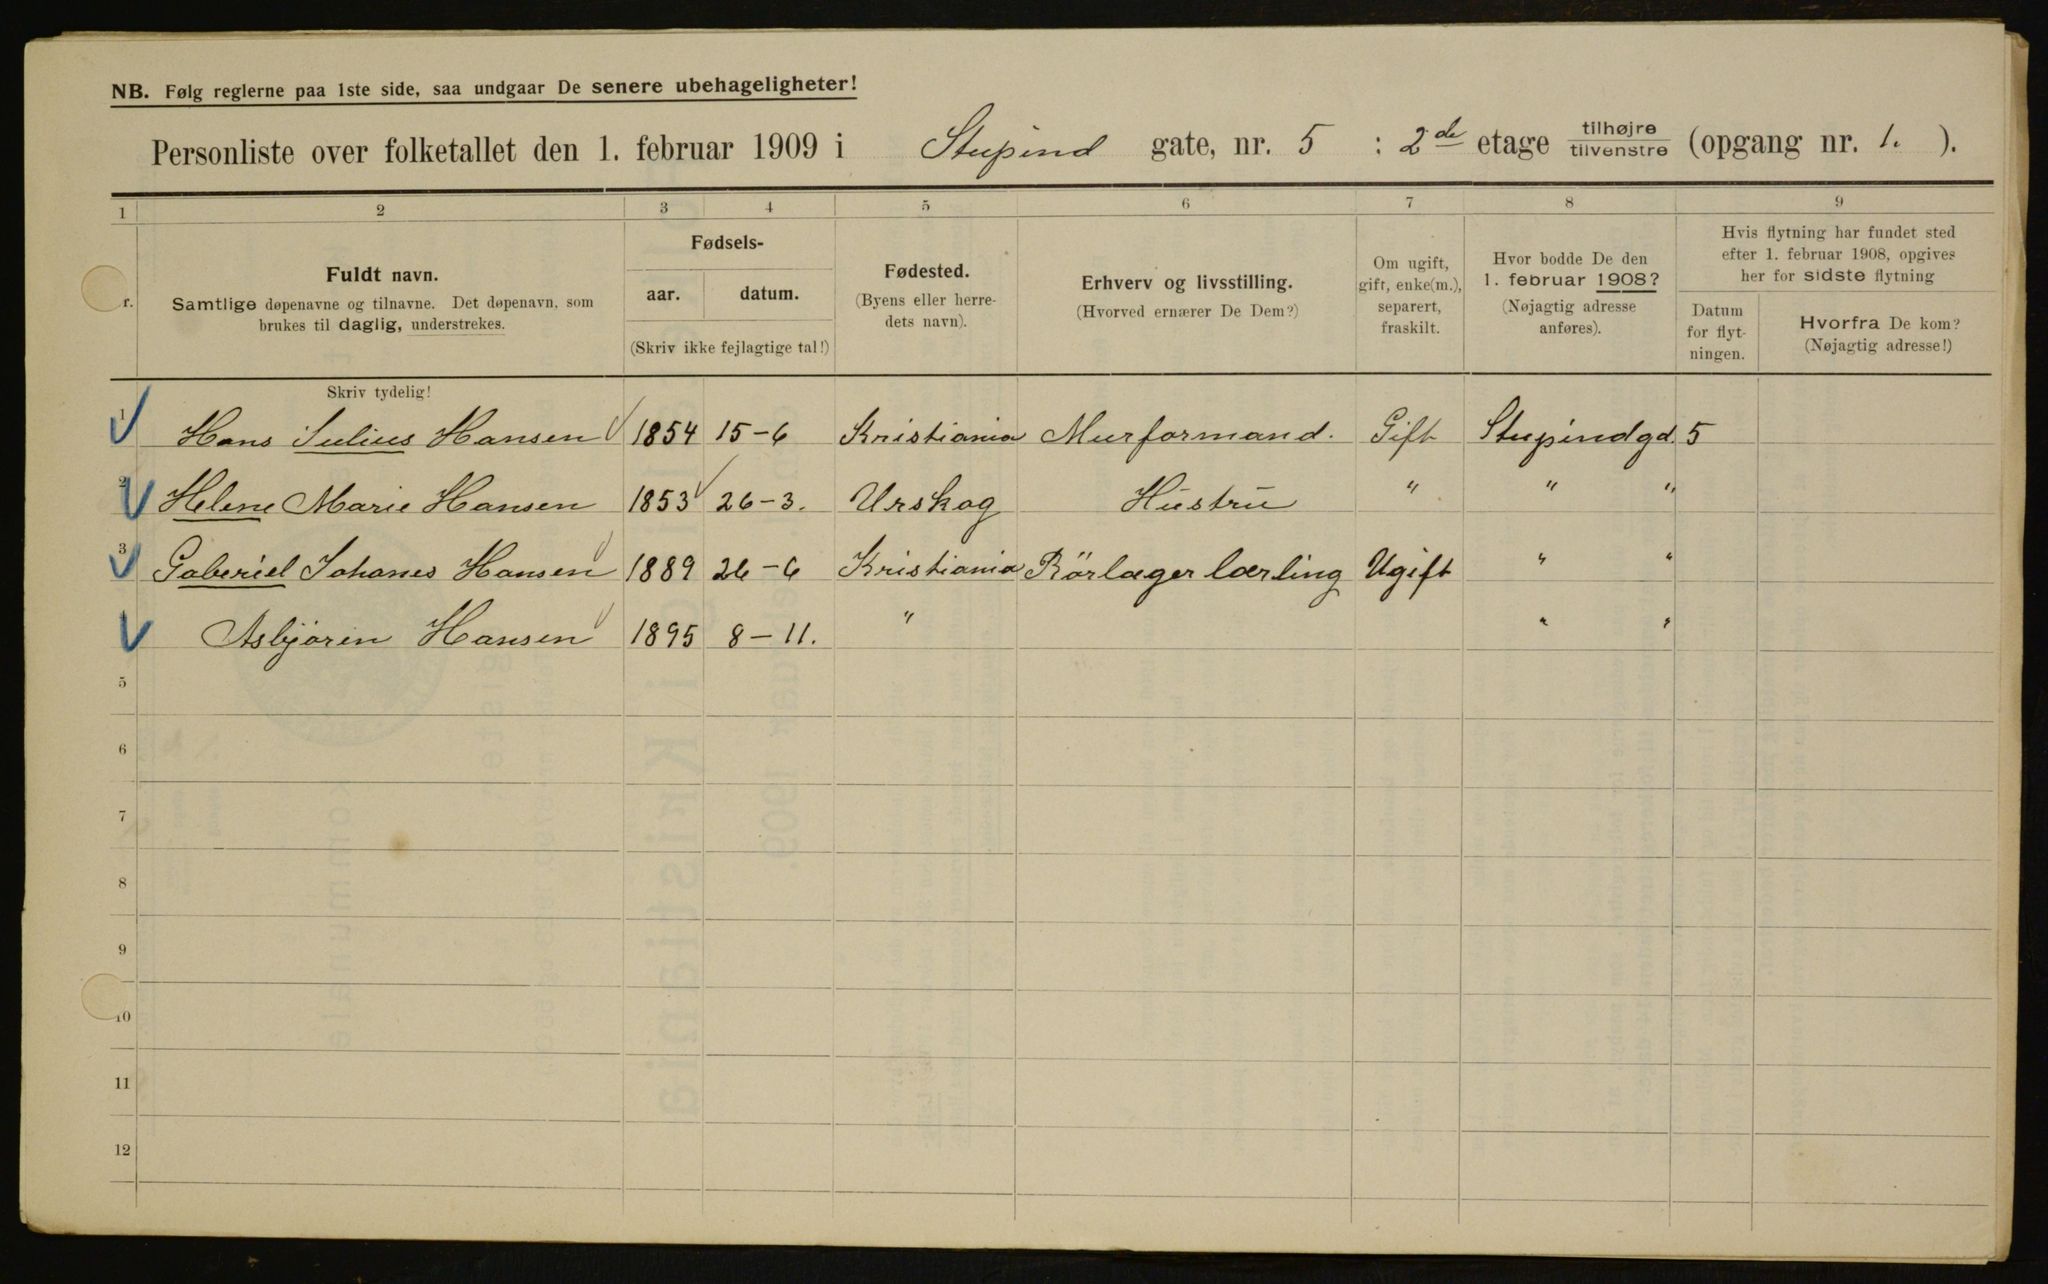 NB. Følg reglerne paa 1ste side, saa undgaar De senere ubehageligheter!
Personliste over folketallet den 1. februar 1909 i Stupind gate, nr. 5 : 2de etage tilhøjre tilvenstre (opgang nr. 1. ).
1 2 3 4 5 6 7 8 9
r. Fuldt navn. Samtlige døpenavne og tilnavne. Det døpenavn, som brukes til daglig, understrekes.
Fødsels-
aar. datum.
(Skriv ikke fejlagtige tal!)
Fødested. (Byens eller herredets navn).
Erhverv og livsstilling. (Hvorved ernærer De Dem?)
Om ugift, gift, enke(m.), separert, fraskilt.
Hvor bodde De den 1. februar 1908? (Nøjagtig adresse anføres).
Hvis flytning har fundet sted efter 1. februar 1908, opgives her for sidste flytning
Datum for flytningen.
Hvorfra De kom? (Nøjagtig adresse!)
Skriv tydelig!
1 Hans Julius Hansen 1854 15-6 Kristiania Murformand. Gift Stupindgd. 5
2 Helene Marie Hansen 1853 26-3. Urskog Hustru " " "
3 Gaberiel Johanes Hansen 1889 26-6 Kristiania Rörlæger lærling Ugift " "
Asbjörin Hansen 1895 8-11. " " "
5
6
7
8
9
10
11
12